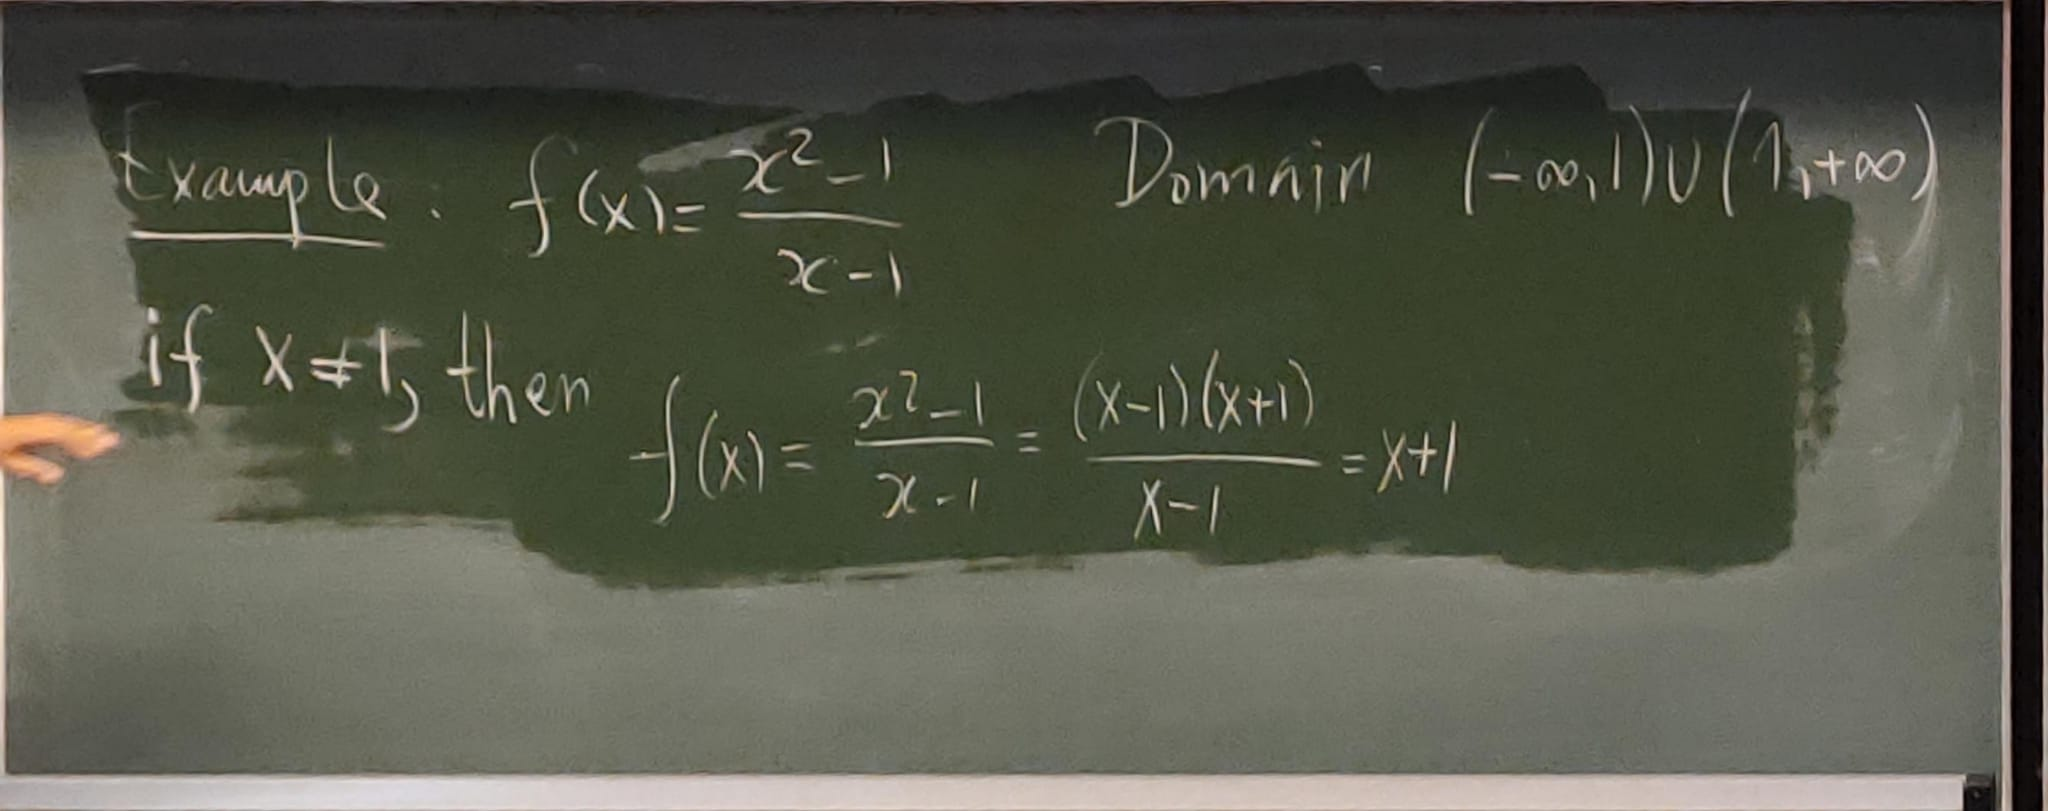 Example. f(x) = (x² - 1)/(x - 1) Domain (-∞, 1) ∪ (1, +∞)
if x ≠ 1, then f(x) = (x² - 1)/(x - 1) = (x-1)(x+1)/(x-1) = x+1